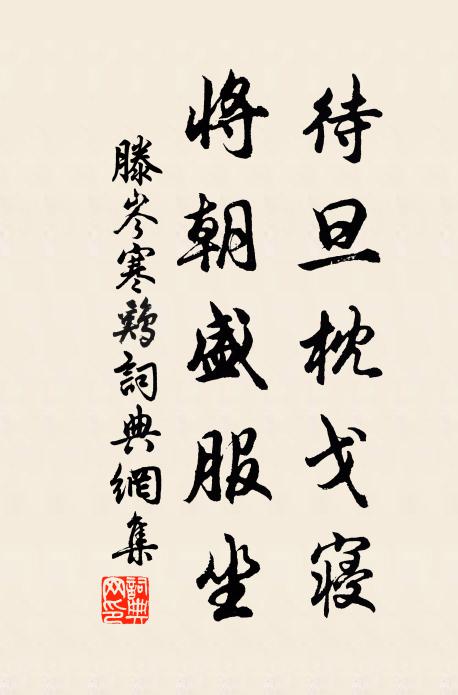 待旦枕戈寝
将朝盛服坐
滕岑寒鷄詞典網集
詞典网印